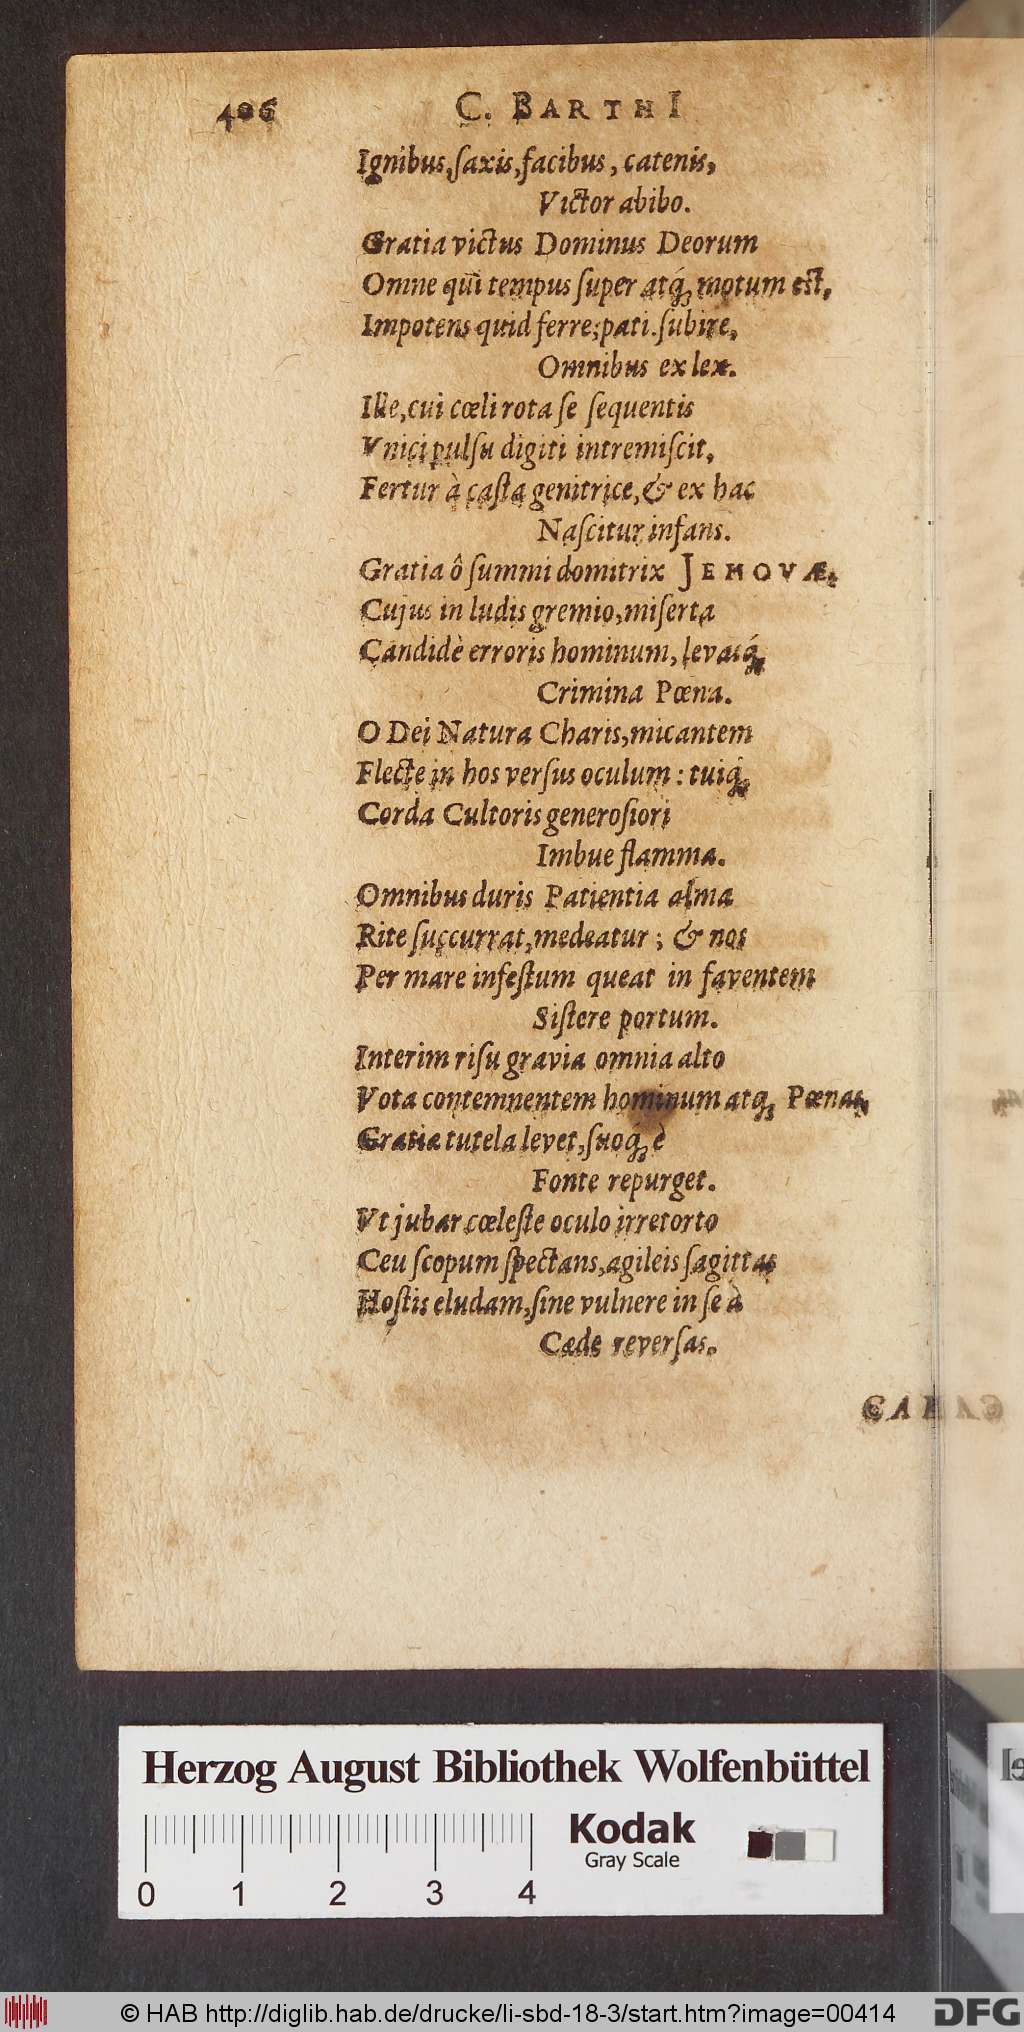 406 C. BARTHI
Ignibus, ſaxis, facibus, catenis,
Victor abibo.
Gratia victus Dominus Deorum
Omne qui tempus ſuper atq́; motum est,
Impotens quid ferre; pati. ſubire,
Omnibus ex lex.
Ille, cui cœli rota ſe ſequentis
Vnici pulſu digiti intremiſcit,
Fertur à caſta genitrice, & ex hac
Naſcitur infans.
Gratia ô ſummi domitrix JEHOVÆ,
Cujus in ludis gremio, miſerta
Candidè erroris hominum, levatq́;
Crimina Pœna.
O Dei Natura Charis, micantem
Flecte in hos verſus oculum: tuiq́;
Corda Cultoris generoſiori
Imbue flamma.
Omnibus duris Patientia alma
Rite ſuccurrat, medeatur; & nos
Per mare infeſtum queat in faventem
Siſtere portum.
Interim riſu gravia omnia alto
Vota contemnentem hominum atq; Pœnas,
Gratia tutela levet, ſuoq́; è
Fonte repurget.
Vt jubar cœleſte oculo irretorto
Ceu ſcopum ſpectans, agileis ſagittas
Hoſtis eludam, ſine vulnere in ſe à
Cæde reverſas.
Herzog August Bibliothek Wolfenbüttel
Kodak
Gray Scale
0 1 2 3 4
© HAB http://diglib.hab.de/drucke/li-sbd-18-3/start.htm?image=00414
DFG